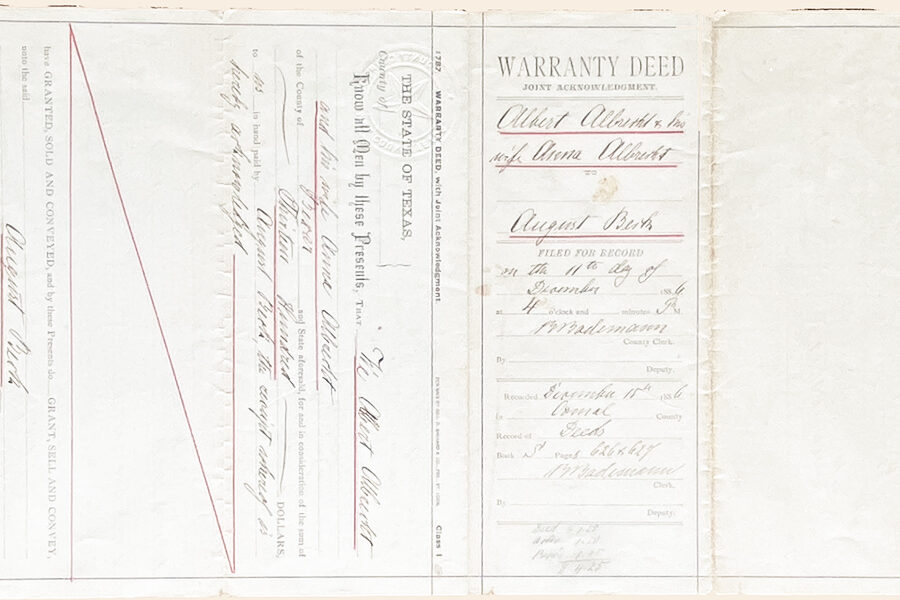 WARRANTY DEED
JOINT ACKNOWLEDGMENT.
Albert Albrecht & his
wife Anna Albrecht
TO
August Berk
FILED FOR RECORD
on the 11th day of
December 1886
at 4 o'clock and minutes P M.
County Clerk.
By
Deputy.
Recorded December 15th 1886
Comal County
Record of Deeds
Book "S" Page 626 & 627
Clerk.
By
Deputy.
1787 WARRANTY DEED, with Joint Acknowledgment Class 1
THE STATE OF TEXAS,
County of
Know all Men by these Presents, THAT We Albert Albrecht
and his wife Anna Albrecht
of the County of Bexar and State aforesaid, for and in consideration of the sum of
Thirteen Hundred DOLLARS,
to us in hand paid by August Berk, the receipt whereof is
hereby acknowledged
have GRANTED, SOLD AND CONVEYED, and by these Presents do GRANT, SELL AND CONVEY,
unto the said
August Berk